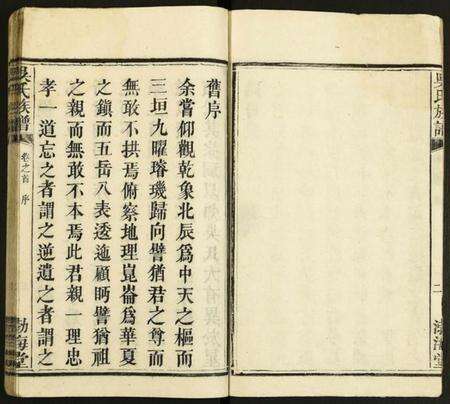 吳氏族譜
二
渤海堂
舊序
余嘗仰觀乾象北辰爲中天之樞而
三垣九曜璿璣歸向譬猶君之尊而
無敢不拱焉俯察地理崑崙爲華夏
之鎮而五岳八表逶迤顧眄譬猶祖
之親而無敢不本焉此君親一理忠
孝一道忘之者謂之逆遺之者謂之
吳氏族譜
卷之首
序
渤海堂